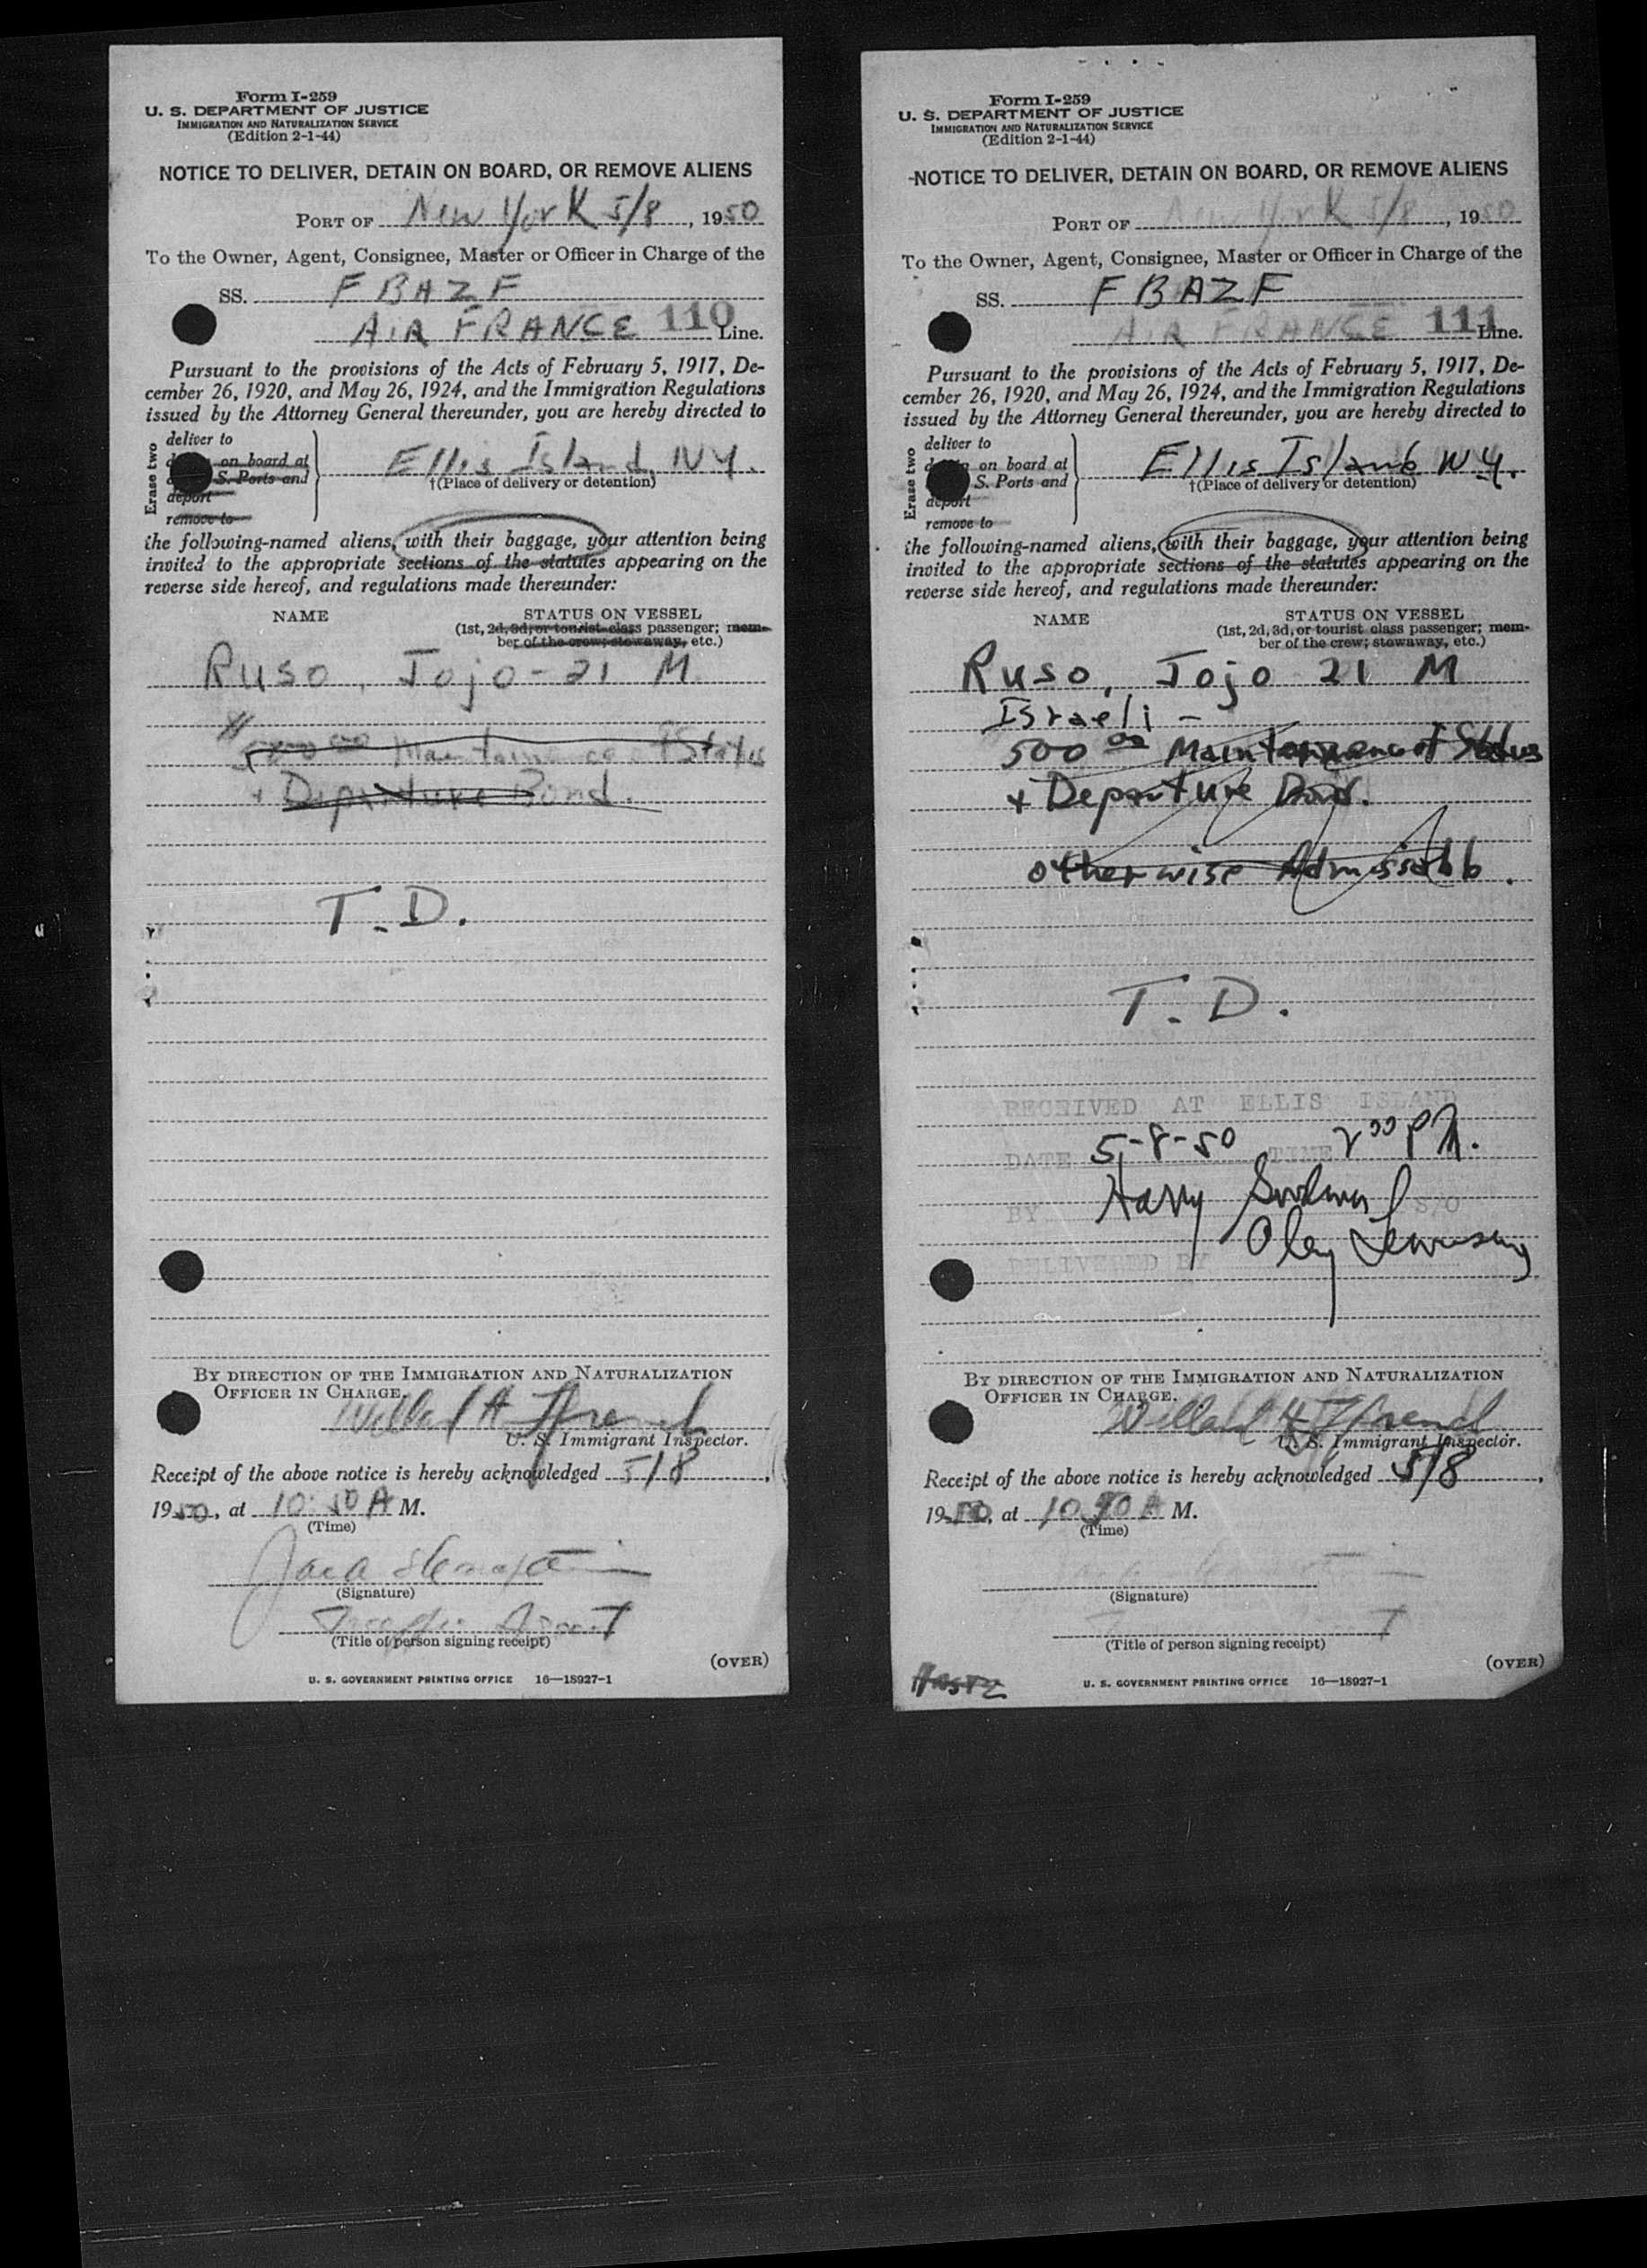 Form I-259
U. S. DEPARTMENT OF JUSTICE
IMMIGRATION AND NATURALIZATION SERVICE
(Edition 2-1-44)
NOTICE TO DELIVER, DETAIN ON BOARD, OR REMOVE ALIENS
PORT OF New York 5/8, 1950
To the Owner, Agent, Consignee, Master or Officer in Charge of the
SS. F BAZF
AIR FRANCE 110 Line.
Pursuant to the provisions of the Acts of February 5, 1917, De-
cember 26, 1920, and May 26, 1924, and the Immigration Regulations
issued by the Attorney General thereunder, you are hereby directed to
Erase two
deliver to
on board at
S. Ports and
deport
remove to
Ellis Island, NY.
†(Place of delivery or detention)
the following-named aliens, with their baggage, your attention being
invited to the appropriate sections of the statutes appearing on the
reverse side hereof, and regulations made thereunder:
NAME
STATUS ON VESSEL
(1st, 2d, 3d, or tourist class passenger; mem-
ber of the crew; stowaway, etc.)
Ruso, Jojo - 21 M
500 00 Maintainence of Status
+ Departure Bond.
T.D.
BY DIRECTION OF THE IMMIGRATION AND NATURALIZATION
OFFICER IN CHARGE.
Willard H French
U. S. Immigrant Inspector.
Receipt of the above notice is hereby acknowledged 5/8,
1950, at 10:50 A M.
(Time)
(Signature)
(Title of person signing receipt)
(OVER)
U. S. GOVERNMENT PRINTING OFFICE 16—18927-1
Form I-259
U. S. DEPARTMENT OF JUSTICE
IMMIGRATION AND NATURALIZATION SERVICE
(Edition 2-1-44)
NOTICE TO DELIVER, DETAIN ON BOARD, OR REMOVE ALIENS
PORT OF New York 5/8, 1950
To the Owner, Agent, Consignee, Master or Officer in Charge of the
SS. F BAZF
AIR FRANCE 111 Line.
Pursuant to the provisions of the Acts of February 5, 1917, De-
cember 26, 1920, and May 26, 1924, and the Immigration Regulations
issued by the Attorney General thereunder, you are hereby directed to
Erase two
deliver to
on board at
S. Ports and
deport
remove to
Ellis Island NY.
†(Place of delivery or detention)
the following-named aliens, with their baggage, your attention being
invited to the appropriate sections of the statutes appearing on the
reverse side hereof, and regulations made thereunder:
NAME
STATUS ON VESSEL
(1st, 2d, 3d, or tourist class passenger; mem-
ber of the crew; stowaway, etc.)
Ruso, Jojo 21 M
Israeli -
500 00 Maintenance of Status
+ Departure Bond.
otherwise Admissable.
T.D.
RECEIVED AT ELLIS ISLAND
DATE 5-8-50 TIME 2 00 PM.
BY Harry S/O
DELIVERED BY
BY DIRECTION OF THE IMMIGRATION AND NATURALIZATION
OFFICER IN CHARGE.
Willard H French
U. S. Immigrant Inspector.
Receipt of the above notice is hereby acknowledged 5/8,
1950, at 10 50 A M.
(Time)
(Signature)
(Title of person signing receipt)
(OVER)
U. S. GOVERNMENT PRINTING OFFICE 16—18927-1